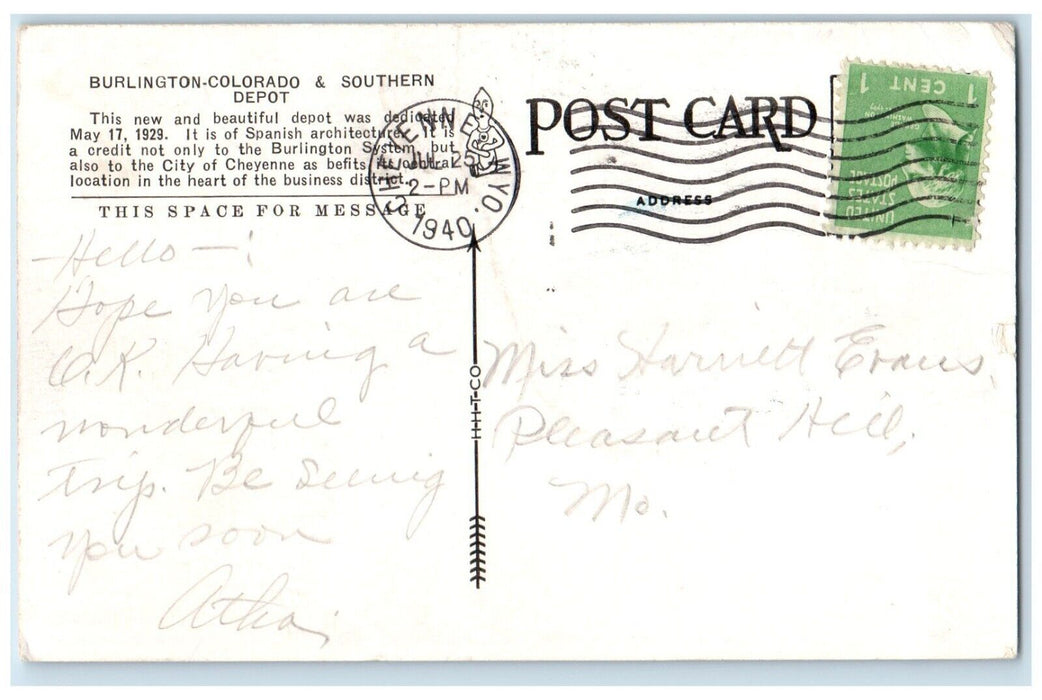 BURLINGTON-COLORADO & SOUTHERN
DEPOT
This new and beautiful depot was dedicated
May 17, 1929. It is of Spanish architecture. It is
a credit not only to the Burlington System, but
also to the City of Cheyenne as befits its central
location in the heart of the business district.
THIS SPACE FOR MESSAGE
CHEYENNE WYO.
JUL 25
2-PM
1940
POST CARD
ADDRESS
1 CENT 1
UNITED
STATES
POSTAGE
H-H-T-CO
—Hello—!
Hope you are
O.K. Having a
wonderful
trip. Be Seeing
you soon
Miss Harriett Evans,
Pleasant Hill,
Mo.